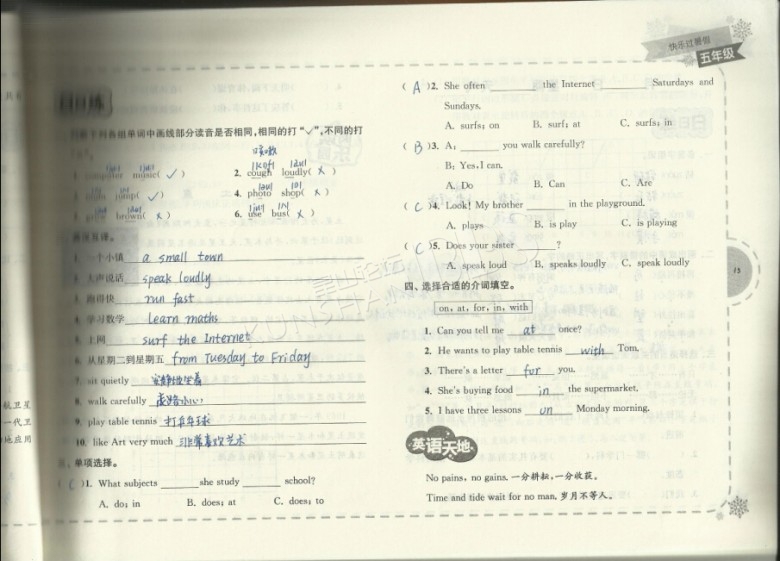 快乐过暑假
五年级
日日练
判断下列各组单词中画线部分读音是否相同,相同的打“√”,不同的打
1. computer music( √ )
2. cough loudly( x )
jump( √ )
4. photo shop( x )
brown( x )
6. use bus( x )
1. 一个小镇 a small town
2. 大声说话 speak loudly
3. 跑得快 run fast
4. 学习数学 learn maths
5. 上网 surf the Internet
6. 从星期二到星期五 from Tuesday to Friday
7. sit quietly 安静地坐着
8. walk carefully 走路小心
9. play table tennis 打乒乓球
10. like Art very much 非常喜欢艺术
三、单项选择。
( C )1. What subjects ______ she study ______ school?
A. do; in B. does; at C. does; to
( A )2. She often ______ the Internet ______ Saturdays and
Sundays.
A. surfs; on B. surf; at C. surfs; in
( B )3. A: ______ you walk carefully?
B: Yes, I can.
A. Do B. Can C. Are
( C )4. Look! My brother ______ in the playground.
A. plays B. is play C. is playing
( C )5. Does your sister ______?
A. speak loud B. speaks loudly C. speak loudly
四、选择合适的介词填空。
on, at, for, in, with
1. Can you tell me at once?
2. He wants to play table tennis with Tom.
3. There's a letter for you.
4. She's buying food in the supermarket.
5. I have three lessons on Monday morning.
英语天地
No pains, no gains. 一分耕耘,一分收获。
Time and tide wait for no man. 岁月不等人。